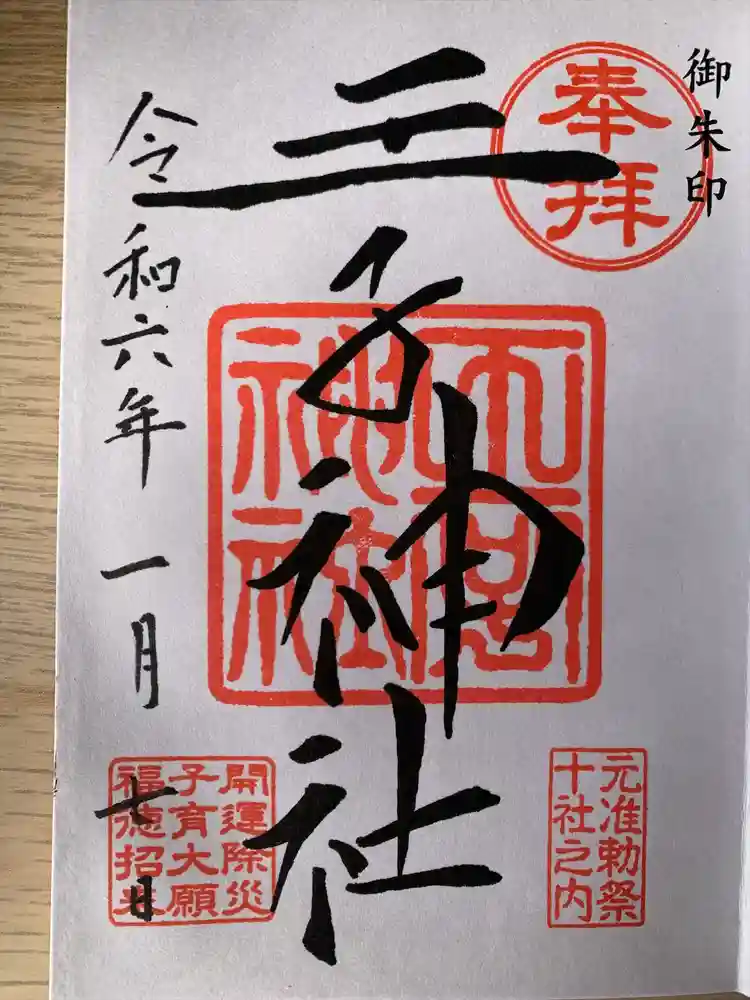 御朱印
奉拝
王子神社
令和六年 一月 七日
元准勅祭
十社之内
開運除災
子育大願
福徳招来